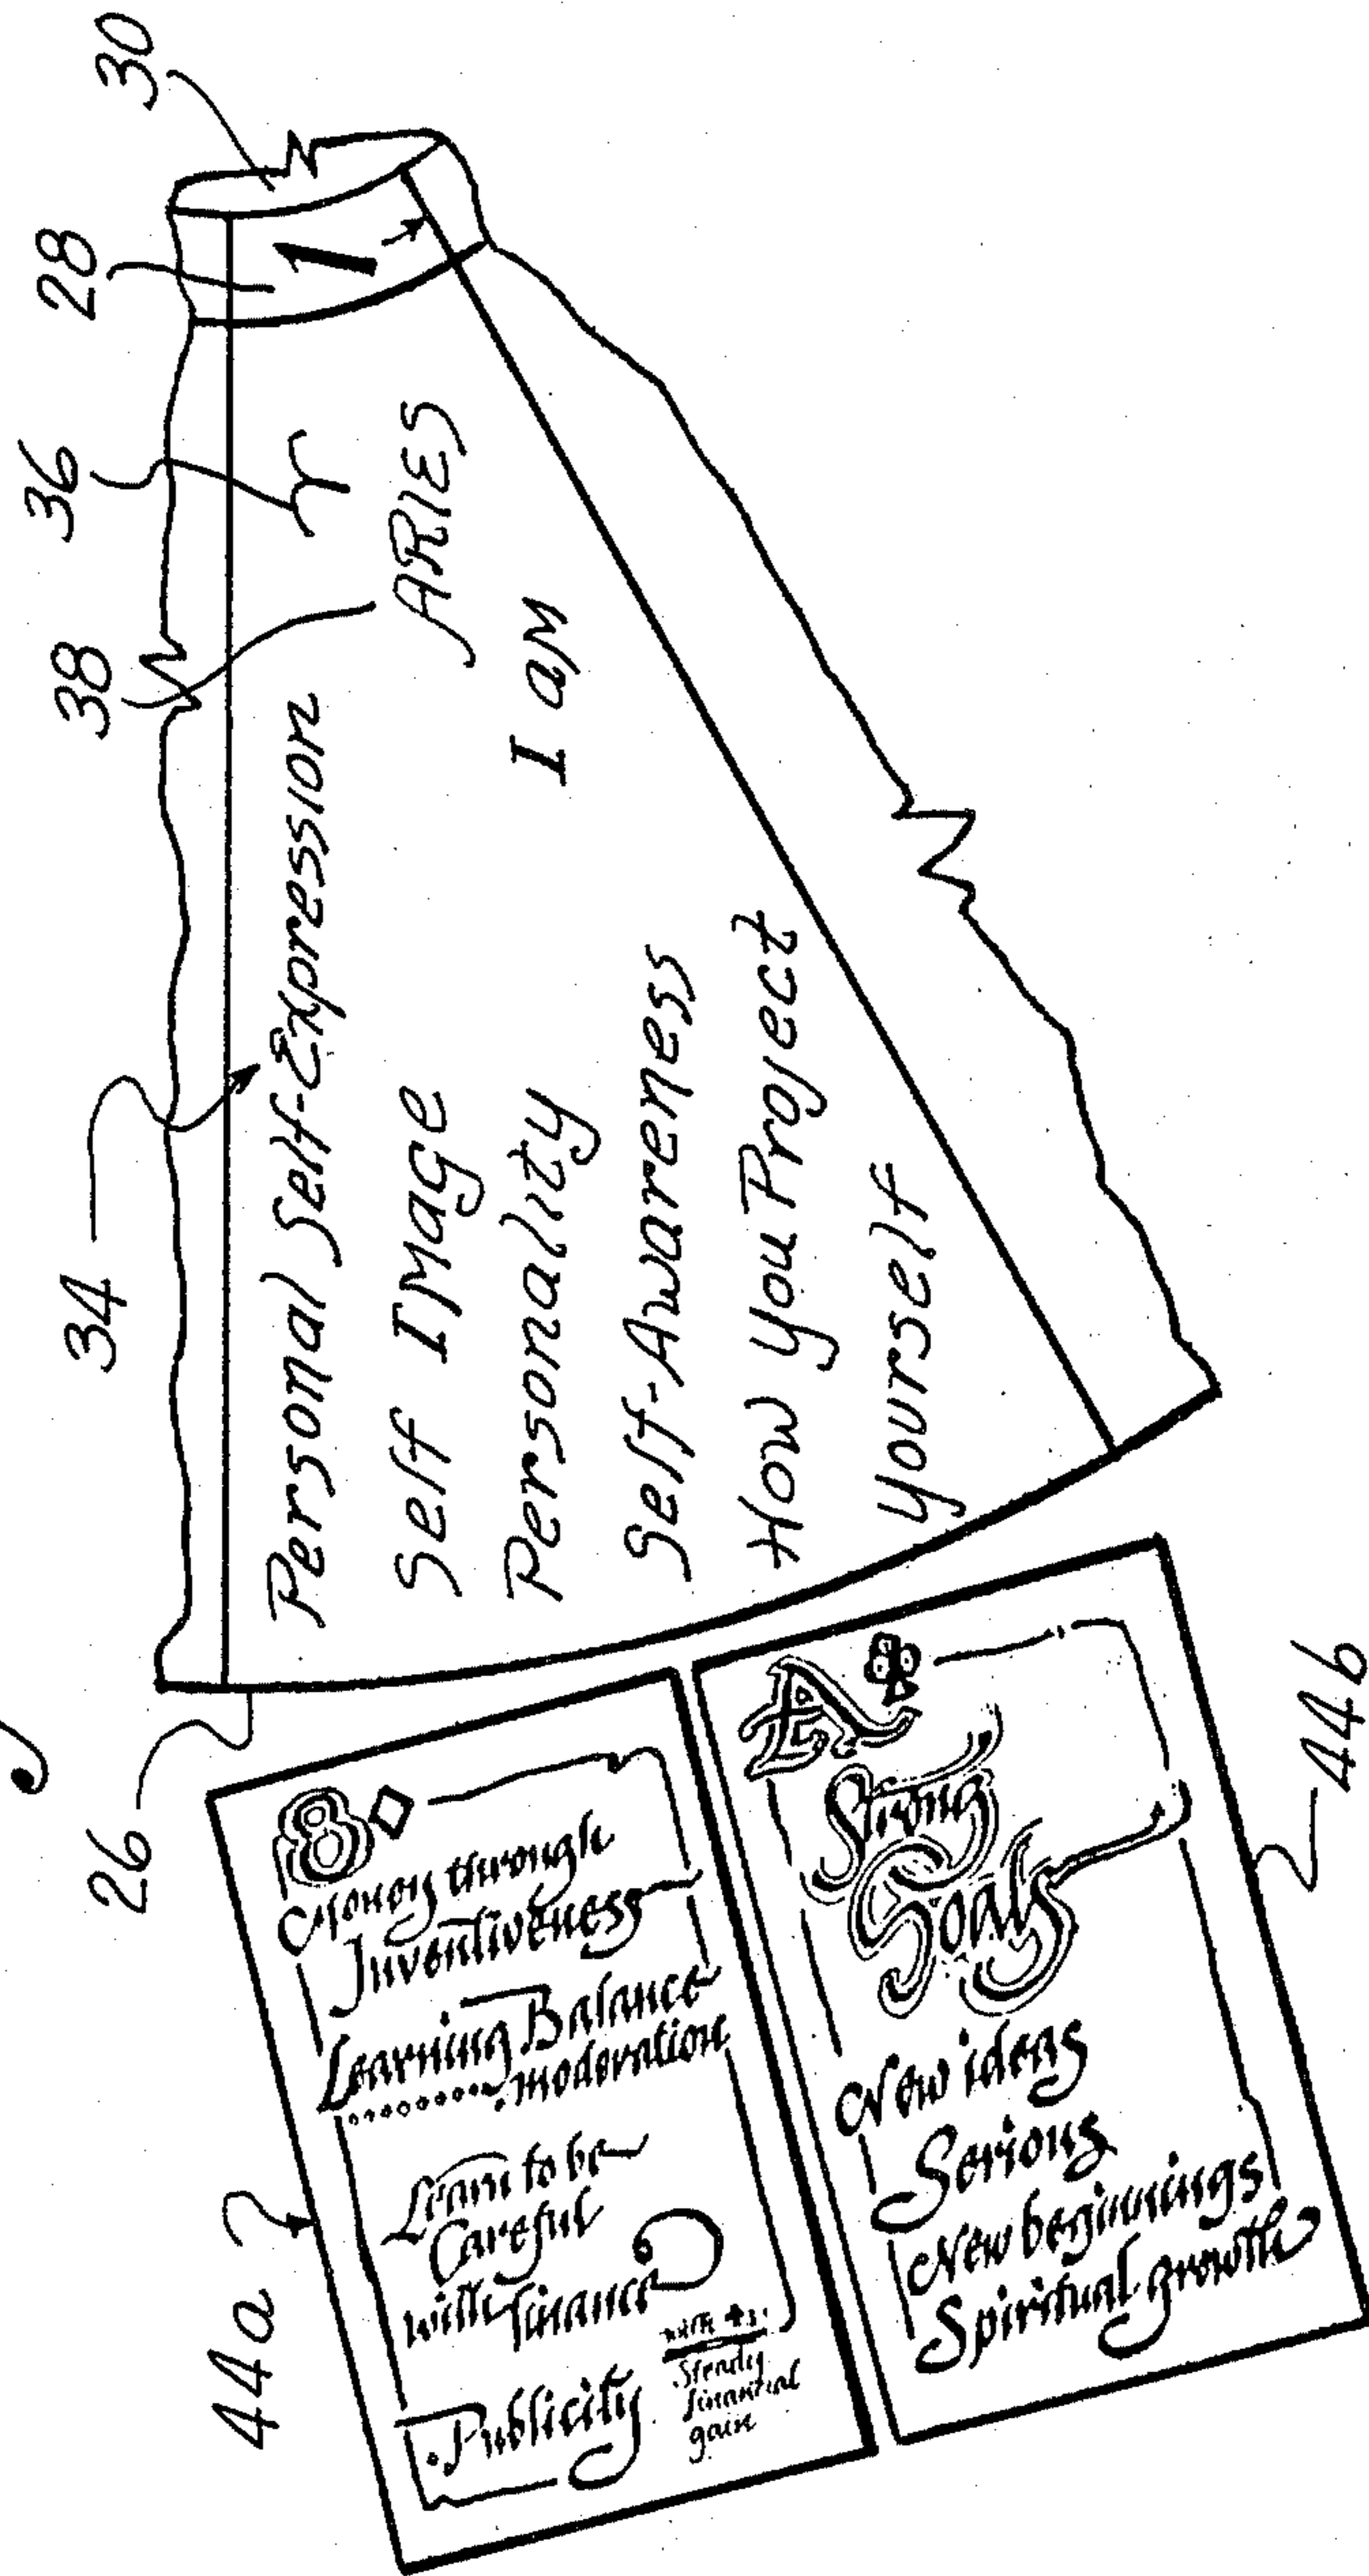 34
38
36
28
30
26
1
♈
ARIES
I am
Personal Self-Expression
Self Image
Personality
Self-Awareness
How You Project
Yourself
44a
8♢
Money through
Inventiveness
Learning Balance
moderation
Learn to be
Careful
with finance
Publicity
with 4s:
Steady
financial
gain
A♣
Strong
Goals
New ideas
Serious
New beginnings
Spiritual growth
44b